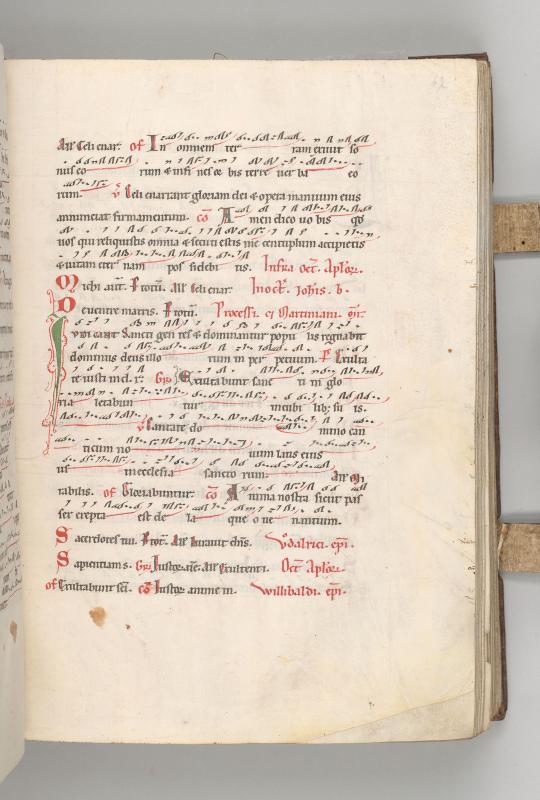 All' Celi enar. of In omnem ter ram exivit so
nus eo rum & in fi nes or bis terre ver ba eo
rum. v Celi enarrant gloriam dei & opera manuum eius
annunciat firmamentum. co Amen dico vo bis qd
vos qui reliquistis omnia & secuti estis me centuplum accipietis
& vitam eter nam pos sidebi tis. Infra oct. Aplor.
Michi aut. P totu. All' Celi enar. In oct. Johis. b.
De ventre matris. P totu. Processi. et Martiniani. mr.
Iudicant sancti gen tes & dominantur popu lis regnabit
dominus deus illo rum in per petuum. P Exulta
te iusti in d. r. Gr Exultabunt sanc ti in glo
ria letabun tur in cubi lib; su is.
v Cantate do mino can
ticum no vum laus eius
in ecclesia sancto rum. All' Mi
rabilis. of Gloriabuntur. co Anima nostra sicut pas
ser erepta est de la que o ve nantium.
Sacerdotes tui. P tot. All' Iuravit dns. Vodalrici. epi.
Sapientiam s. Gr Iustor. aie. All' Fulgebunt i. Oct Aplor.
of Exultabunt sci. co Iustor anime in. Willibaldi. epi.